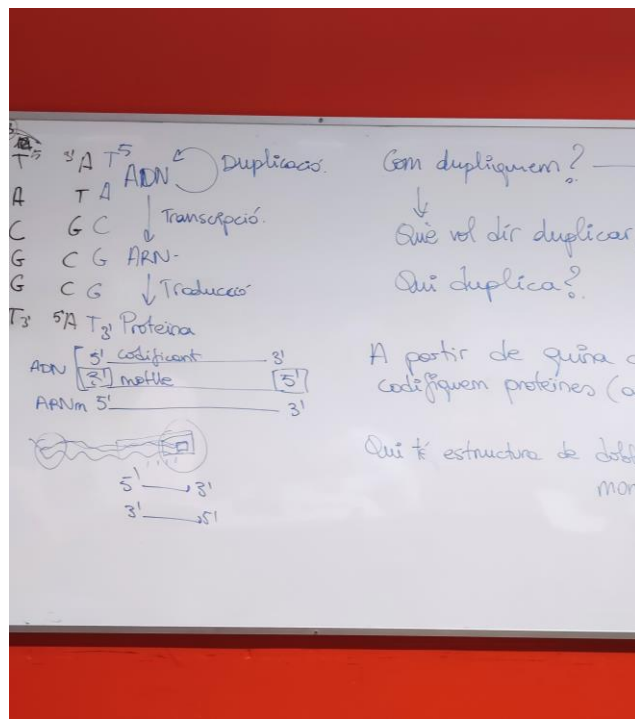 T 5' 3' A T 5'
ADN Duplicació.
A T A
Transcripció.
C G C
G C G ARN-
G C G Traducció
T 3' 5' A T 3' Proteïna
ADN 5' codificant 3'
3' motlle 5'
ARNm 5' 3'
5' 3'
3' 5'
Com dupliquem?
Què vol dir duplicar
Qui duplica?
A partir de quina
codifiquem proteïnes (a
Qui té estructura de